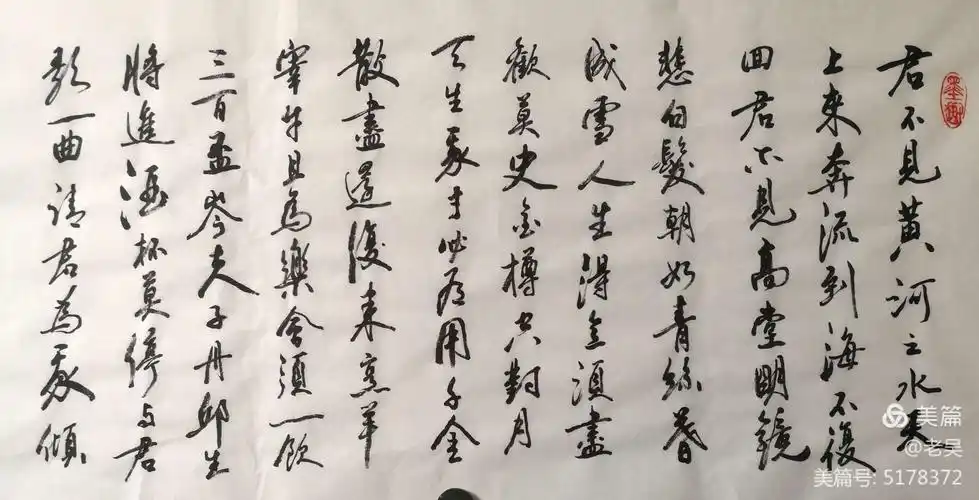 君不見黃河之水天
上來奔流到海不復
回君不見高堂明鏡
悲白髮朝如青絲暮
成雪人生得意須盡
歡莫史金樽空對月
天生我才必有用千金
散盡還復來烹羊
宰牛且為樂會須一飲
三百盃岑夫子丹邱生
將進酒杯莫停與君
歌一曲請君為我傾
美篇
@老吴
美篇号: 5178372